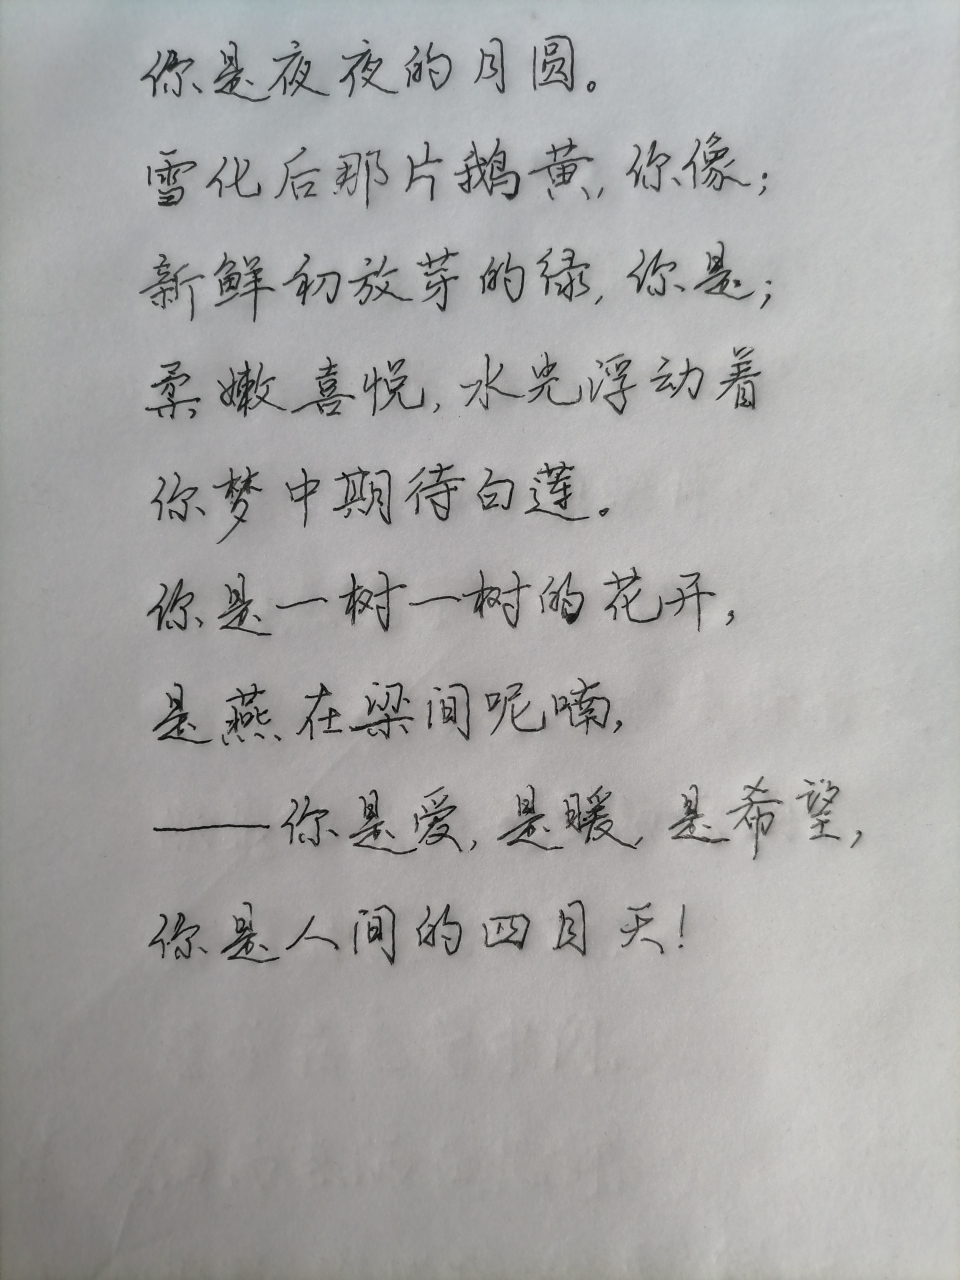 你是夜夜的月圆。
雪化后那片鹅黄,你像;
新鲜初放芽的绿,你是;
柔嫩喜悦,水光浮动着
你梦中期待白莲。
你是一树一树的花开,
是燕在梁间呢喃,
——你是爱,是暖,是希望,
你是人间的四月天!